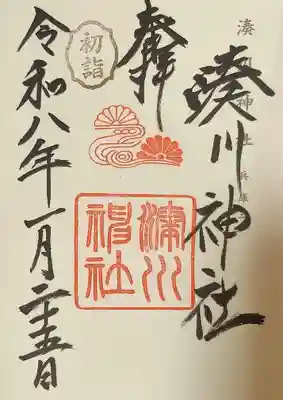 湊川神社 兵庫
湊川神社
奉拝
湊川
神社
初詣
令和八年一月二十五日